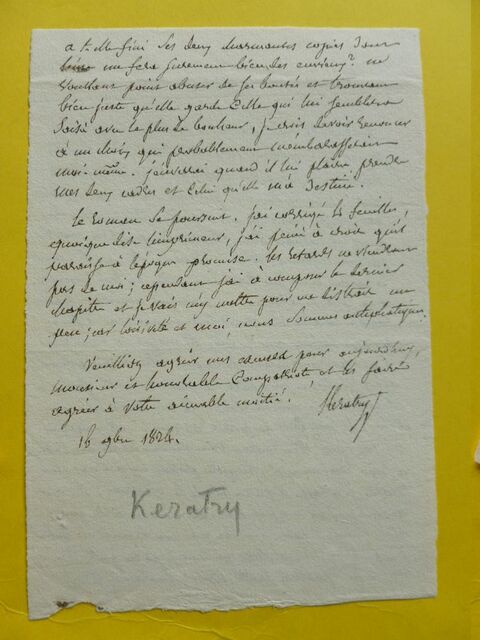 a t-elle fini ses deux charmantes copies dont
un fera surement bien des envieux? ne
voulant point abuser de ses bontés et trouvant
bien juste qu'elle garde celle qui lui semblera
avec le plus de bonheur, je crois devoir renoncer
à un choix qui probablement m'embarasserait
moi-même. j'enverrai quand il lui plaira prendre
mes deux cadres et celui qu'elle m'a destiné.
le roman se poursuit. j'ai corrigé 14 feuilles,
quoique dise l'imprimeur, j'ai peine à croire qu'il
paraisse à l'époque promise. les retards ne viendront
pas de moi; cependant j'ai à composer le dernier
chapitre et je vais m'y mettre pour me distraire un
peu; car l'oisiveté et moi, nous sommes antipathiques.
Veuillez agréer mes pour aujourd'hui,
monsieur et honorable Compatriote et les faire
agréer à votre aimable moitié.
Keratry
16 9bre 1824.
Keratry